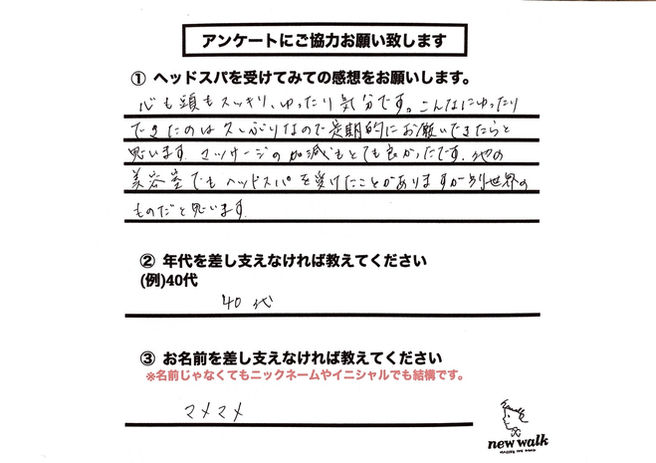 アンケートにご協力お願い致します
① ヘッドスパを受けてみての感想をお願いします。
心も頭もスッキリ、ゆったり気分です。こんなにゆったり
できたのは久しぶりなので定期的にお願いできたらと
思います。マッサージの加減もとても良かったです。他の
美容室でもヘッドスパを受けたことがありますが別世界の
ものだと思います。
② 年代を差し支えなければ教えてください
(例)40代
40代
③ お名前を差し支えなければ教えてください
※名前じゃなくてもニックネームやイニシャルでも結構です。
マメマメ
new walk